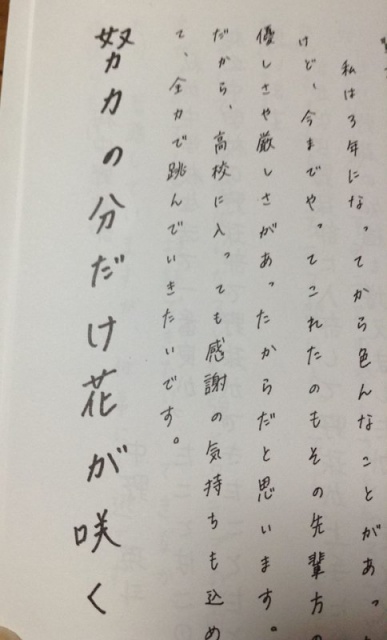 私は3年になってから色んなことがあっ
けど、今までやってこれたのもその先輩方
優しさや厳しさがあったからだと思います。
だから、高校に入っても感謝の気持ちも込め
て、全力で跳んでいきたいです。
努力の分だけ花が咲く